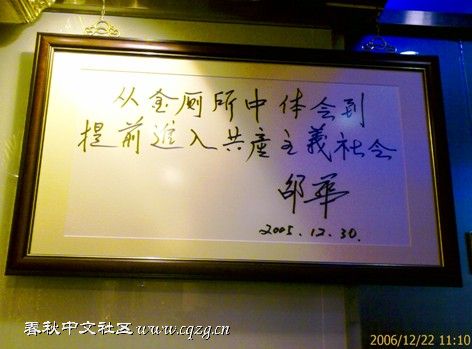 从金厕所中体会到
提前進入共產主義社会
邵华
2005.12.30.
春秋中文社区 www.cqzg.cn
2006/12/22 11:10